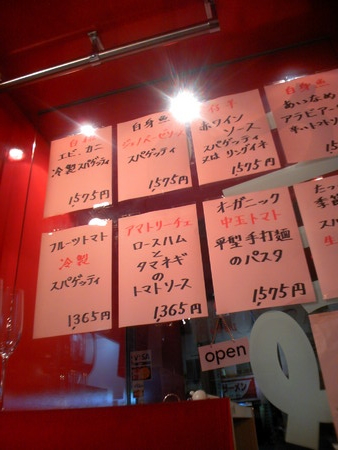 自
エビ、カニ
冷製スパゲッティ
1575円
白身魚
ジェノベーゼソース
スパゲッティ
1575円
仔羊
赤ワイン
ソース
スパゲッティ
又は リングイネ
1575円
白身魚
あいなめ
アラビアータ
フルーツトマト
冷製
スパゲッティ
1,365円
アマトリーチェ
ロースハム
と
タマネギ
の
トマトソース
1,365円
オーガニック
中玉トマト
平型手打麺
のパスタ
1,575円
たっ
季節
ス
生
open
ラーメン